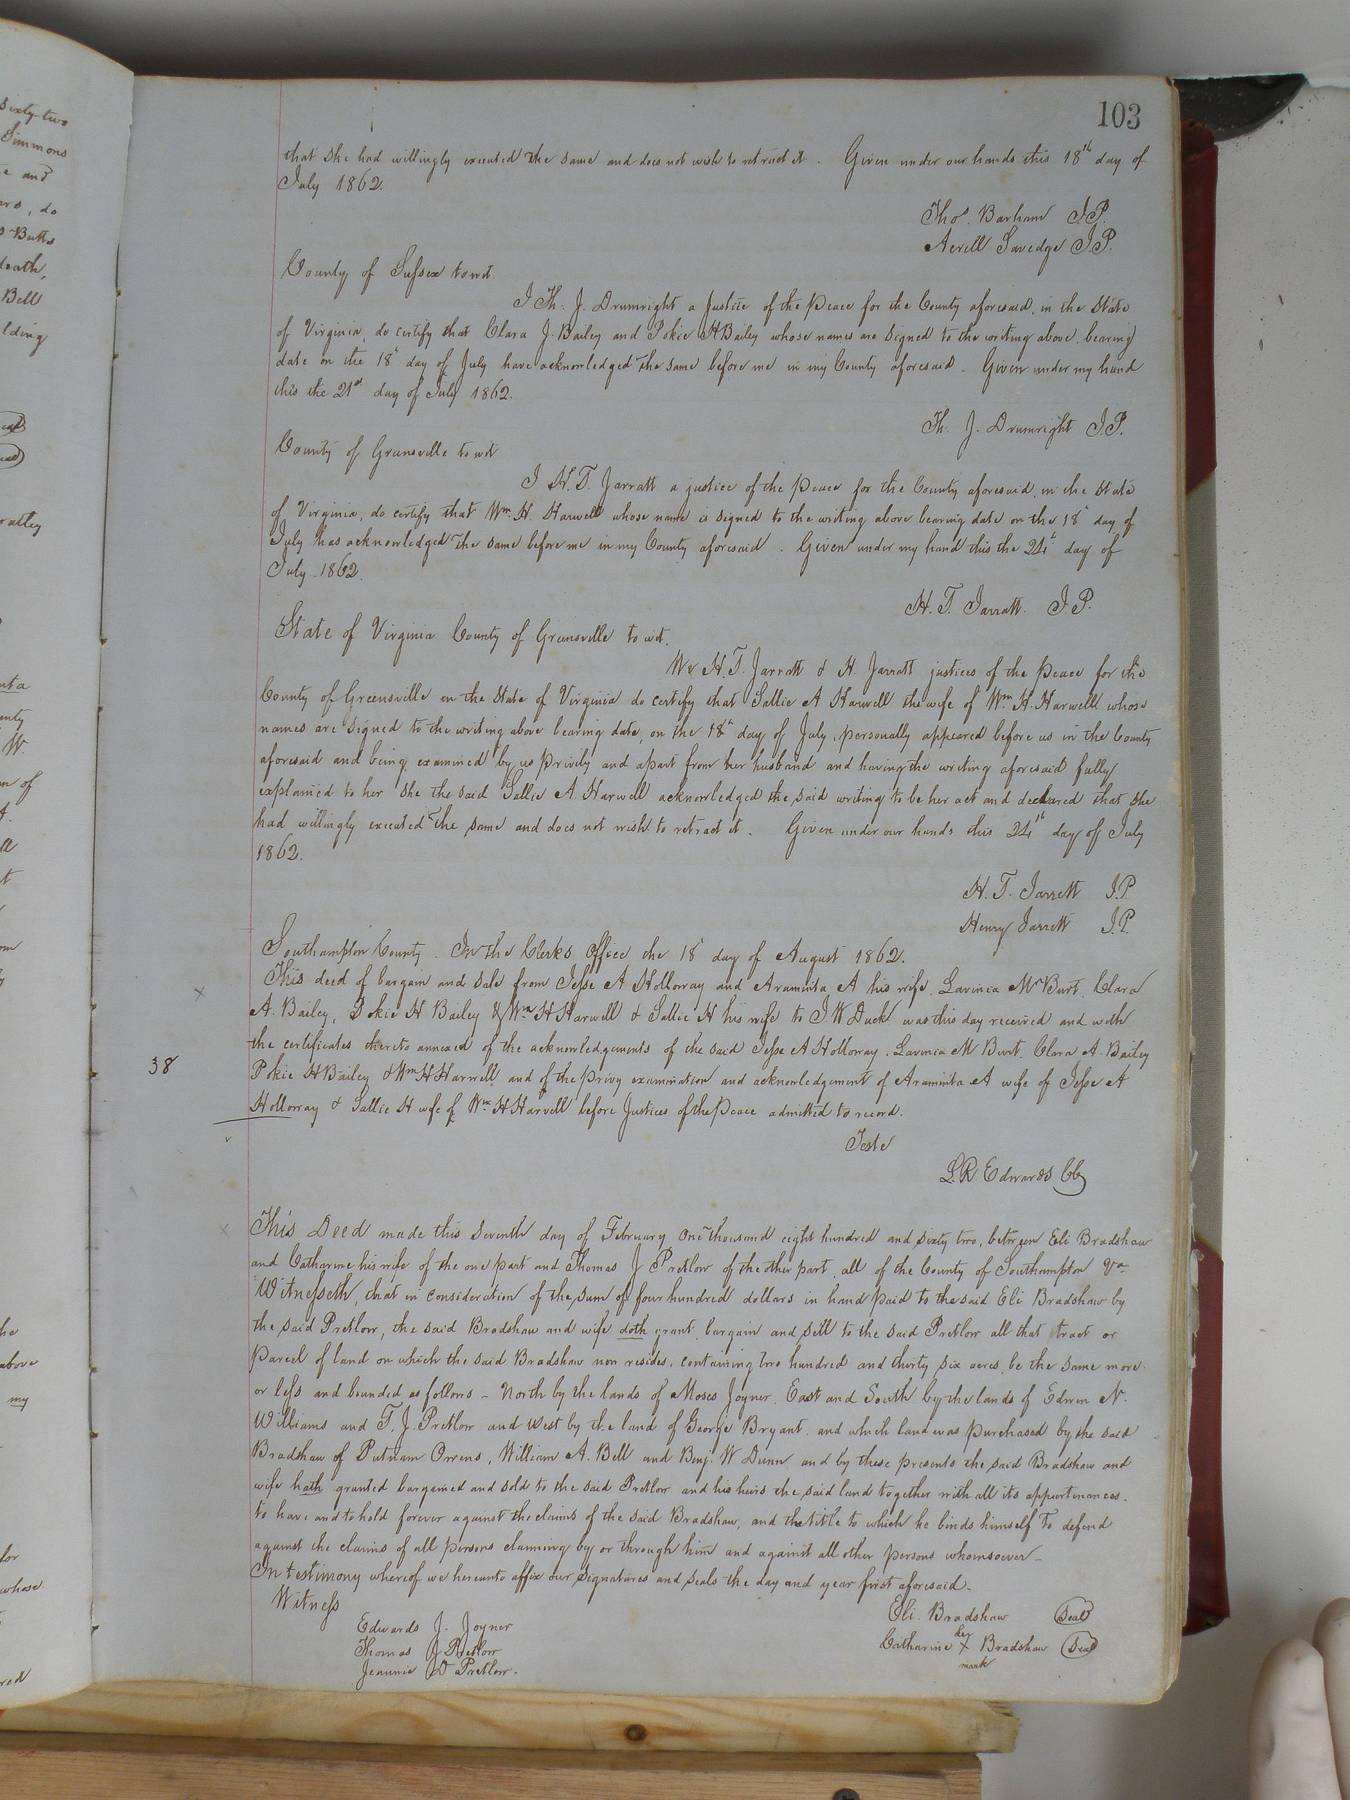 103
that she had willingly executed the same and does not wish to retract it. Given under our hands this 18th day of
July 1862.
Thos. Barham J.P.
Aerill Savedge J.P.
County of Sussex to wit.
I Th. J. Drumright a Justice of the Peace for the County aforesaid, in the State
of Virginia, do certify that Clara J. Bailey and Pokie H Bailey whose names are signed to the writing above, bearing
date on the 18th day of July have acknowledged the same before me in my County aforesaid. Given under my hand
this the 21st day of July 1862.
Th. J. Drumright J.P.
County of Greensville to wit
I H. T. Jarratt a justice of the Peace for the County aforesaid, in the State
of Virginia, do certify that Wm H. Harwell whose name is signed to the writing above bearing date on the 18th day of
July has acknowledged the same before me in my County aforesaid. Given under my hand this the 24th day of
July 1862.
H. T. Jarratt. J.P.
State of Virginia County of Greensville to wit.
We H. T. Jarratt & H. Jarratt justices of the Peace for the
County of Greensville in the State of Virginia do certify that Sallie A Harwell the wife of Wm H. Harwell whose
names are signed to the writing above bearing date, on the 18th day of July, personally appeared before us in the County
aforesaid and being examined by us privily and apart from her husband and having the writing aforesaid fully
explained to her she the said Sallie A. Harwell acknowledged the said writing to be her act and declared that she
had willingly executed the same and does not wish to retract it. Given under our hands this 24th day of July
1862.
H. T. Jarratt J.P.
Henry Jarratt J.P.
Southampton County. In the Clerks Office the 18th day of August 1862.
This deed of bargain and sale from Jesse A Holloway and Araminta A his wife, Lavinia M Burt, Clara
A. Bailey, Pokie H Bailey & Wm H Harwell & Sallie H his wife to J. W Duck was this day received and with
the certificates thereto annexed of the acknowledgements of the said Jesse A Holloway, Lavinia M Burt, Clara A. Bailey
38
Pokie H Bailey & Wm H Harwell and of the privy examination and acknowledgement of Araminta A wife of Jesse A
Holloway & Sallie H wife of Wm H Harwell before Justices of the Peace admitted to record.
Teste
L. R. Edwards CC
This Deed made this Seventh day of February One thousand eight hundred and sixty two, between Eli Bradshaw
and Catharine his wife of the one part and Thomas J Pretlow of the other part, all of the County of Southampton Va
Witnesseth, that in consideration of the sum of four hundred dollars in hand paid to the said Eli Bradshaw by
the said Pretlow, the said Bradshaw and wife doth grant, bargain and sell to the said Pretlow all that tract or
parcel of land on which the said Bradshaw now resides, containing two hundred and thirty six acres, be the same more
or less and bounded as follows - North by the lands of Moses Joyner, East and South by the lands of Edwin N.
Williams and T. J. Pretlow and West by the land of George Bryant, and which land was purchased by the said
Bradshaw of Putnam Owens, William A. Bell and Benj. W Dunn and by these presents the said Bradshaw and
wife hath granted bargained and sold to the said Pretlow and his heirs the said land together with all its appurtenances.
to have and to hold forever against the claims of the said Bradshaw, and the title to which he binds himself to defend
against the claims of all persons claiming by or through him and against all other persons whomsoever -
In testimony whereof we hereunto affix our signatures and seals the day and year first aforesaid.
Witness
Edwards J. Joyner
Thomas J Pretlow
Jeannie D Pretlow.
Eli. Bradshaw Seal
her
Catharine x Bradshaw Seal
mark